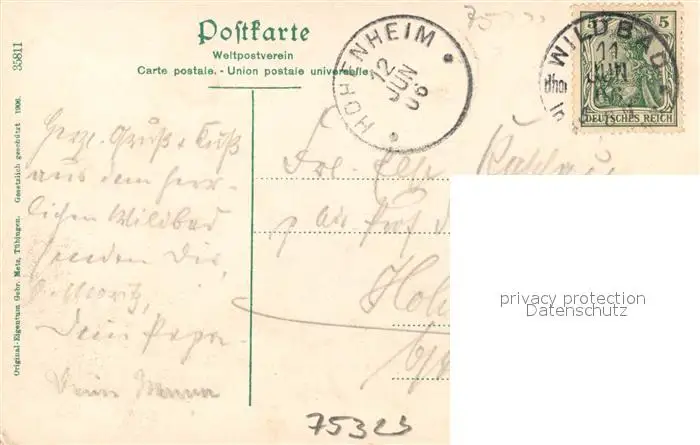 Postkarte
Weltpostverein
Carte postale. - Union postale universelle
35811
Original-Eigentum Gebr. Metz, Tübingen. Gesetzlich geschützt 1906.
HOHENHEIM
12
JUN
06
75
WILDBAD
11
JUN
5 5
DEUTSCHES REICH
Herzl. Gruß & Kuß
aus dem herr-
lichen Wildbad
senden Dir,
Dein Papa
Frl. Else
75325
privacy protection
Datenschutz